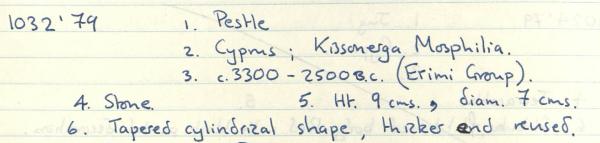 1032'79 1. Pestle
2. Cyprus; Kissonerga Mosphilia.
3. c.3300 - 2500 B.C. (Erimi Group).
4. Stone. 5. Ht. 9 cms., diam. 7 cms.
6. Tapered cylindrical shape, thicker end reused.